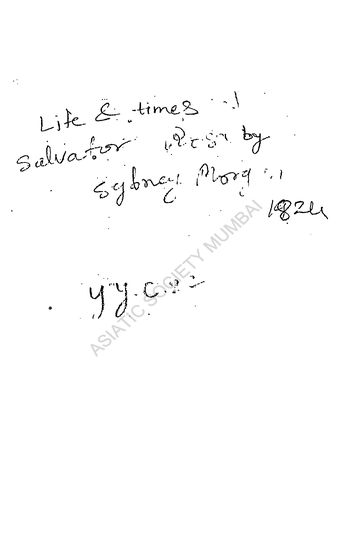 Life & times
Salvator Rosa by
Sydney Morg
1824
ASIATIC SOCIETY MUMBAI